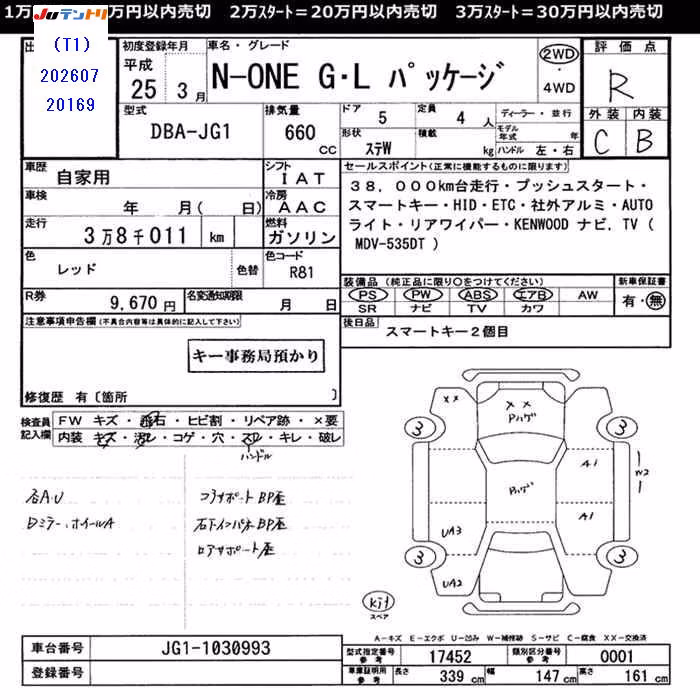 1万 万円以内売切 2万スタート＝20万円以内売切 3万スタート＝30万円以内売切
JUテントリ
(T1)
202607
20169
出
初度登録年月
平成
25 3月
車名・グレード
N-ONE G・L パッケージ
2WD
・
4WD
評価点
R
外装 内装
C B
型式
DBA-JG1
排気量
660
CC
ドア 5
定員 4 人
形状 ステW
積載 kg
ディーラー・並行
モデル年式 年
ハンドル 左・右
車歴
自家用
シフト
IAT
車検
年 月( 日)
冷房
AAC
走行
3万8千011 km
燃料
ガソリン
色
レッド
色替
色コード
R81
R券
9,670 円
名変通知期限
月 日
セールスポイント(正常に機能するものに限ります)
38，000km台走行・プッシュスタート・
スマートキー・HID・ETC・社外アルミ・AUTO
ライト・リアワイパー・KENWOOD ナビ．TV (
MDV-535DT )
装備品 (純正品に限り○をつけてください)
PS PW ABS エアB AW
SR ナビ TV カワ
新車保証書
有・無
後日品
スマートキー2個目
注意事項申告欄(不具合内容等は具体的に記入して下さい)
キー事務局預かり
修復歴 有〔箇所 〕
検査員
記入欄
FW キズ・飛石・ヒビ割・リペア跡・×要
内装 キズ・汚レ・コゲ・穴・スレ・キレ・破レ
ハンドル
各A.U
Dミラー.ホイールA
コアサポートBP歪
右下インパネBP歪
ロアサポート歪
××
××
Pハゲ
3
3
A1
W2
Pハゲ
A1
UA3
3
3
UA2
kit
スペア
A－キズ E－エクボ U－凹み W－補修跡 S－サビ C－腐食 XX－交換済
車台番号
JG1-1030993
登録番号
型式指定番号
参考
17452
類別区分番号
参考
0001
車庫証明用
参考
長さ 339 cm
幅 147 cm
高さ 161 cm